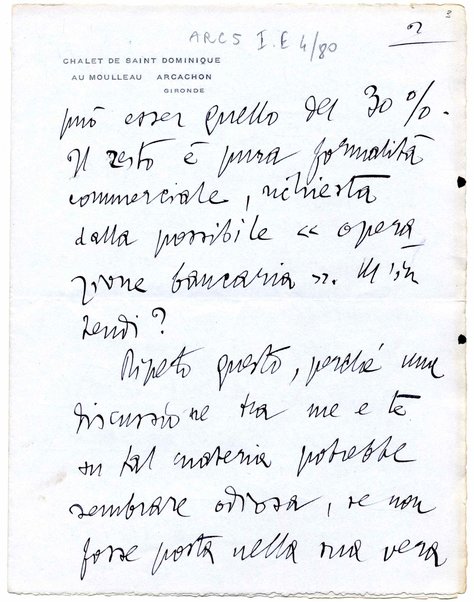 ARCS I.E 4/80
2
CHALET DE SAINT DOMINIQUE
AU MOULLEAU ARCACHON
GIRONDE
può esser quello del 30%.
Il resto è pura formalità
commerciale, richiesta
dalla possibile « opera
zione bancaria ». M'in
tendi?
Ripeto questo, perché una
discussione tra me e te
su tal materia potrebbe
sembrare odiosa, se non
fosse posta nella sua vera